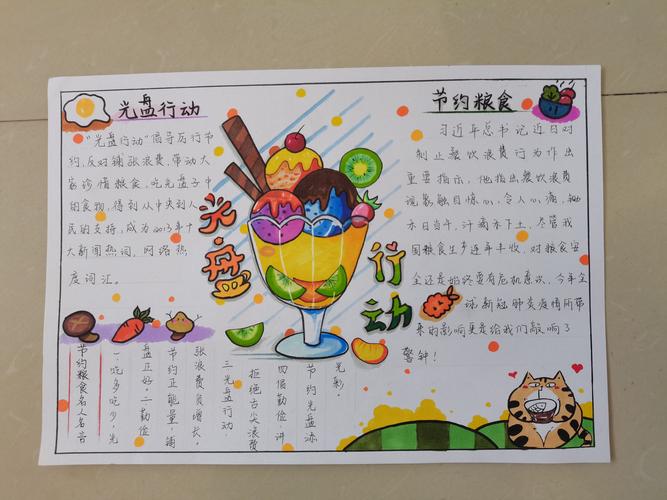 光盘行动
"光盘行动"倡导厉行节
约,反对铺张浪费,带动大
家珍惜粮食,吃光盘子中
的食物,得到从中央到人
民的支持,成为2013年十
大新闻热词、网络热
度词汇。
光·盘
行动
节约粮食
习近平总书记近日对
制止餐饮浪费行为作出
重要指示,他指出餐饮浪费
现象,触目惊心、令人心痛,锄
禾日当午,汗滴禾下土,尽管我
国粮食生产连年丰收,对粮食安
全还是始终要有危机意识,今年全
球新冠肺炎疫情所带
来的影响更是给我们敲响了
警钟!
节约粮食名人名言
一·吃多吃少,光
盘正好。二勤俭
节约正能量,铺
张浪费负增长。
三光盘行动
拒绝舌尖浪费
四倡勤俭·讲
节约光盘添
光彩。